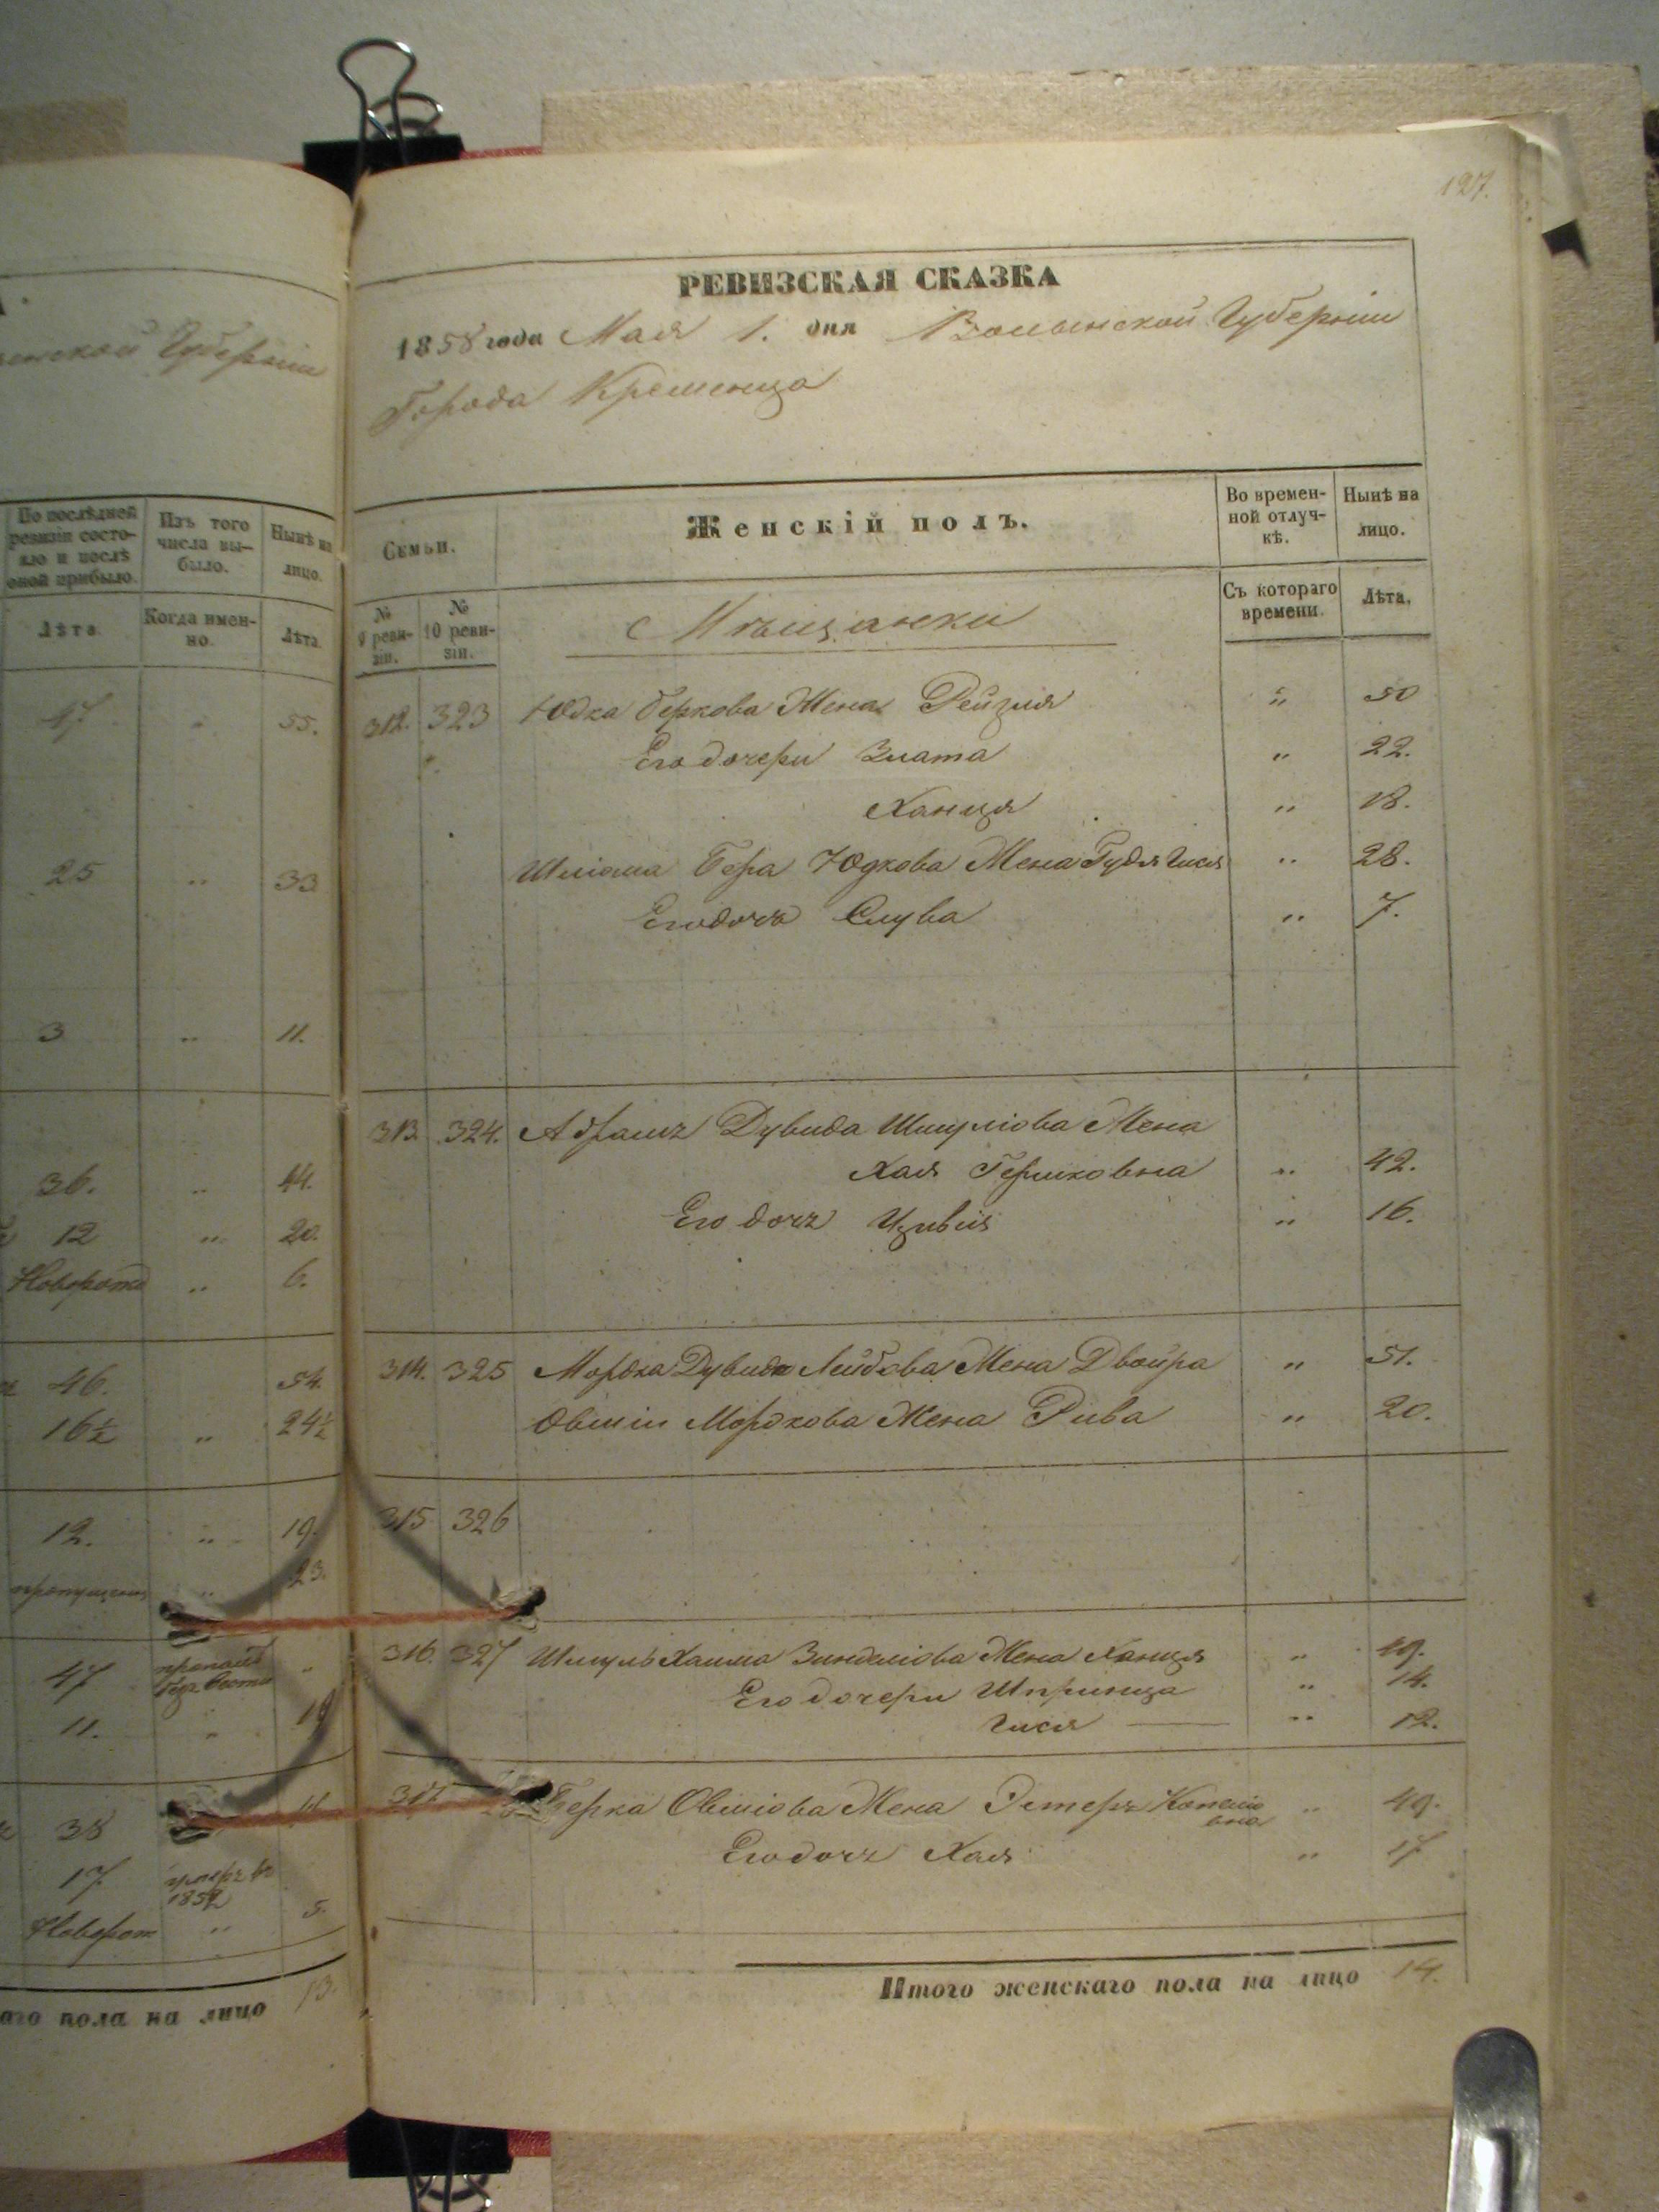 127.
енской Губерніи
По послѣдней ревизіи состояло и послѣ оной прибыло.
Изъ того числа выбыло.
Нынѣ на лицо.
Лѣта.
Когда именно.
Лѣта.
47 „ 55.
25 „ 33
3 „ 11.
36. „ 44.
12 „ 20.
Новорожд „ 6.
46. 54.
16½ „ 24½
12. „ 19.
пропущенъ „ 23.
47 пропалъ безъ вести „
11. „ 19
38
17 умеръ въ 1852
Новорож „ 5.
аго пола на лицо 13.
РЕВИЗСКАЯ СКАЗКА
1858 года Мая 1. дня Волынской Губерніи
Города Кременца
Семьи.
Женскій полъ.
Во временной отлучкѣ.
Нынѣ на лицо.
№ 9 ревизіи.
№ 10 ревизіи.
Мѣщанки
Съ котораго времени.
Лѣта.
312. 323 Юдка Беркова Жена Рейзля „ 50
Его дочери Злата „ 22.
Ханця „ 18.
Шліома Бера Юдкова Жена Гудя Гися „ 28.
Его дочь Слува „ 7.
313. 324. Абрамъ Дувида Шмуліова Жена
Хая Гершковна „ 42.
Его дочь Цивія „ 16.
314. 325 Мордка Дувида Лейбова Жена Двойра „ 51.
Овшіи Мордкова Жена Рива „ 20.
315 326
316. 327 Шмуль Хаима Зинделіова Жена Ханця „ 49.
Его дочери Шпринца „ 14.
Гися „ 12.
317 Берка Овшіова Жена Эстеръ Копеліовна „ 49.
Его дочь Хая „ 17
Итого женскаго пола на лицо 14.